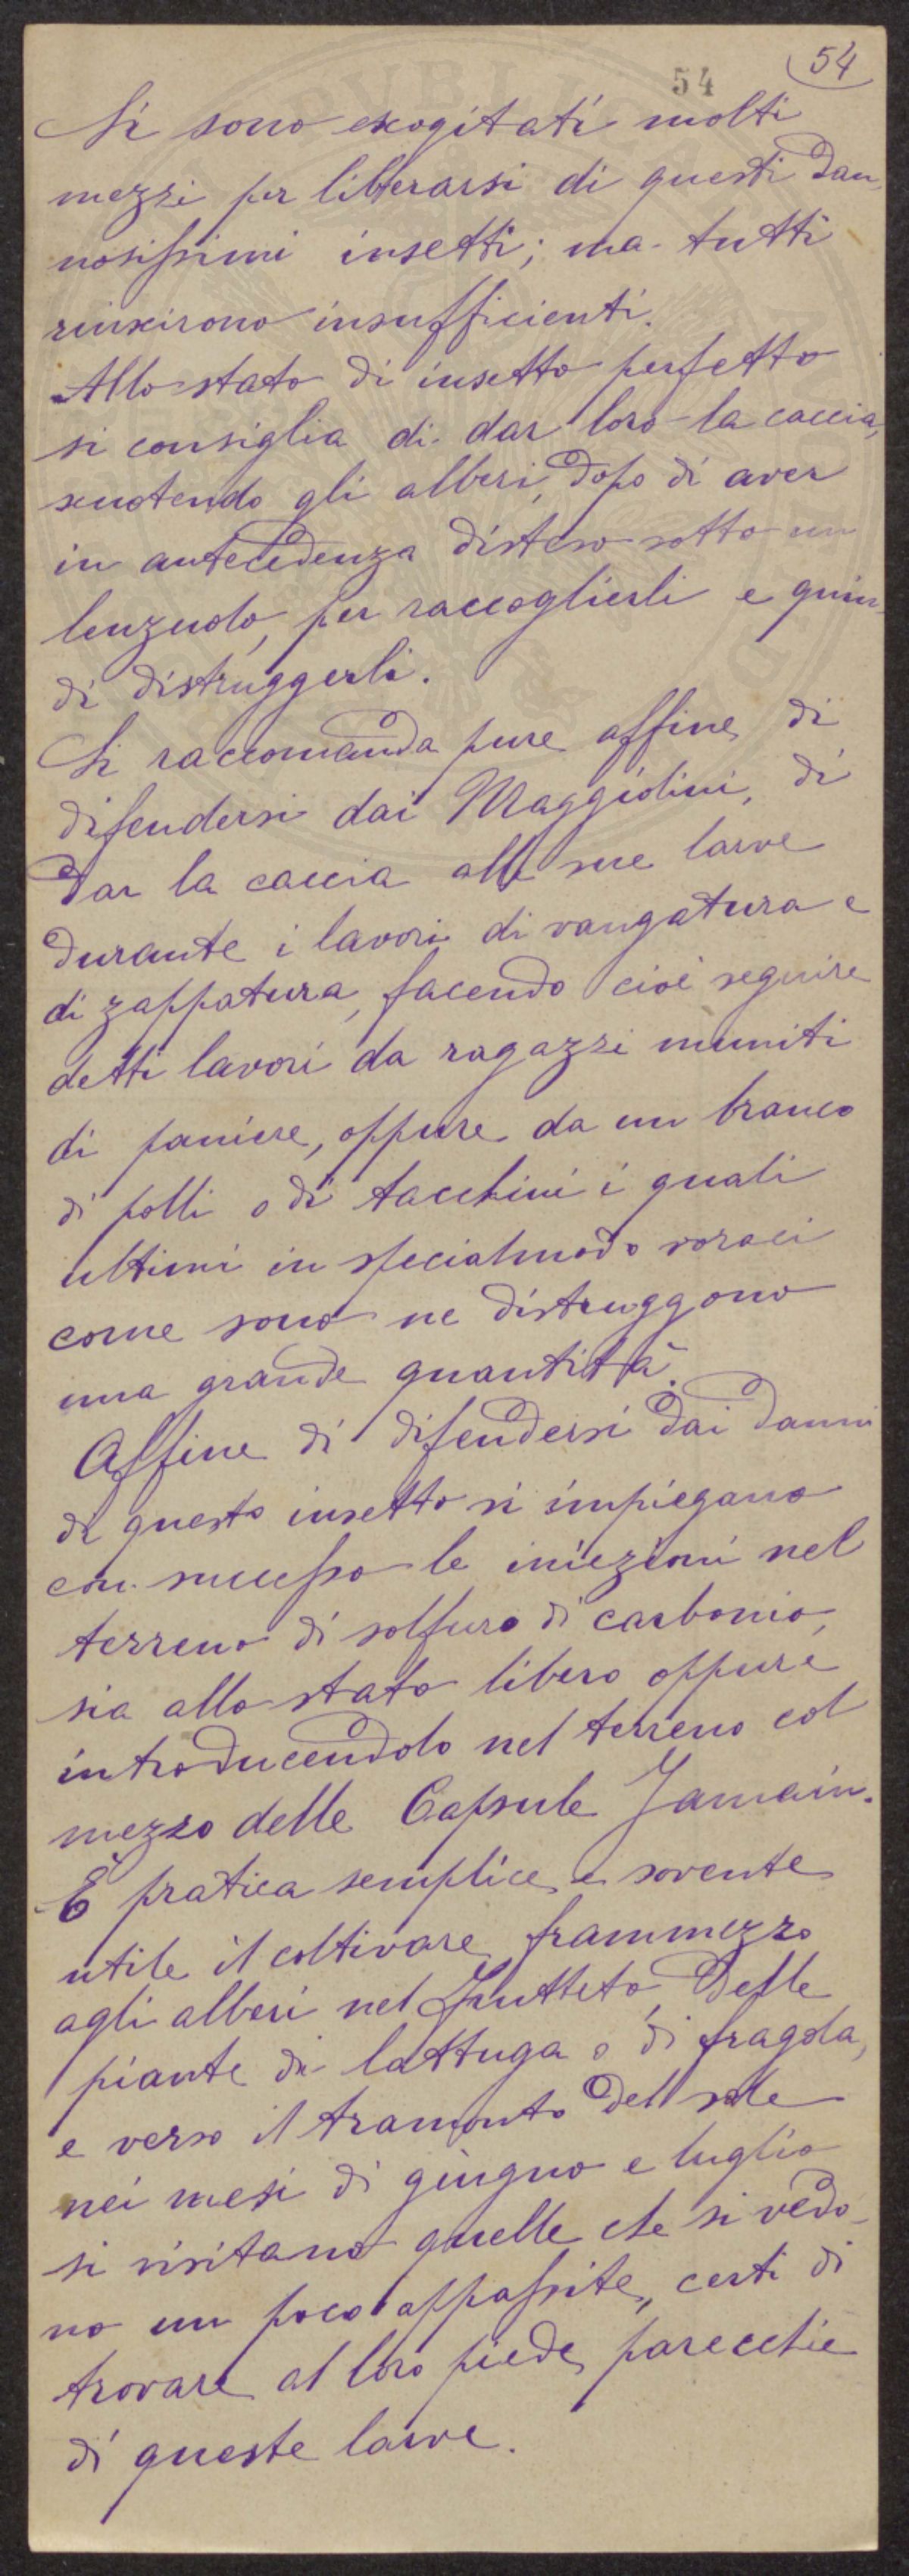 54
54
Si sono escogitati molti
mezzi per liberarsi di questi dan
nosissimi insetti; ma tutti
riuscirono insufficienti.
Allo stato di insetto perfetto
si consiglia di dar loro la caccia,
scuotendo gli alberi, dopo di aver
in antecedenza disteso sotto un
lenzuolo, per raccoglierli e quin-
di distruggerli.
Si raccomanda pure affine di
difendersi dai Maggiolini, di
dar la caccia alle sue larve
durante i lavori di vangatura e
di zappatura, facendo cioè seguire
detti lavori da ragazzi muniti
di paniere, oppure da un branco
di polli o di tacchini i quali
ultimi in specialmodo voraci
come sono ne distruggono
una grande quantità.
Affine di difendersi dai danni
di questo insetto si impiegano
con successo le iniezioni nel
terreno di solfuro di carbonio,
sia allo stato libero oppure
introducendolo nel terreno col
mezzo delle Capsule Jamain.
È pratica semplice e sovente
utile il coltivare frammezzo
agli alberi nel frutteto, delle
piante di lattuga o di fragola,
e verso il tramonto del sole
nei mesi di giugno e luglio
si visitano quelle che si vedo-
no un poco appassite, certi di
trovare al loro piede parecchie
di queste larve.